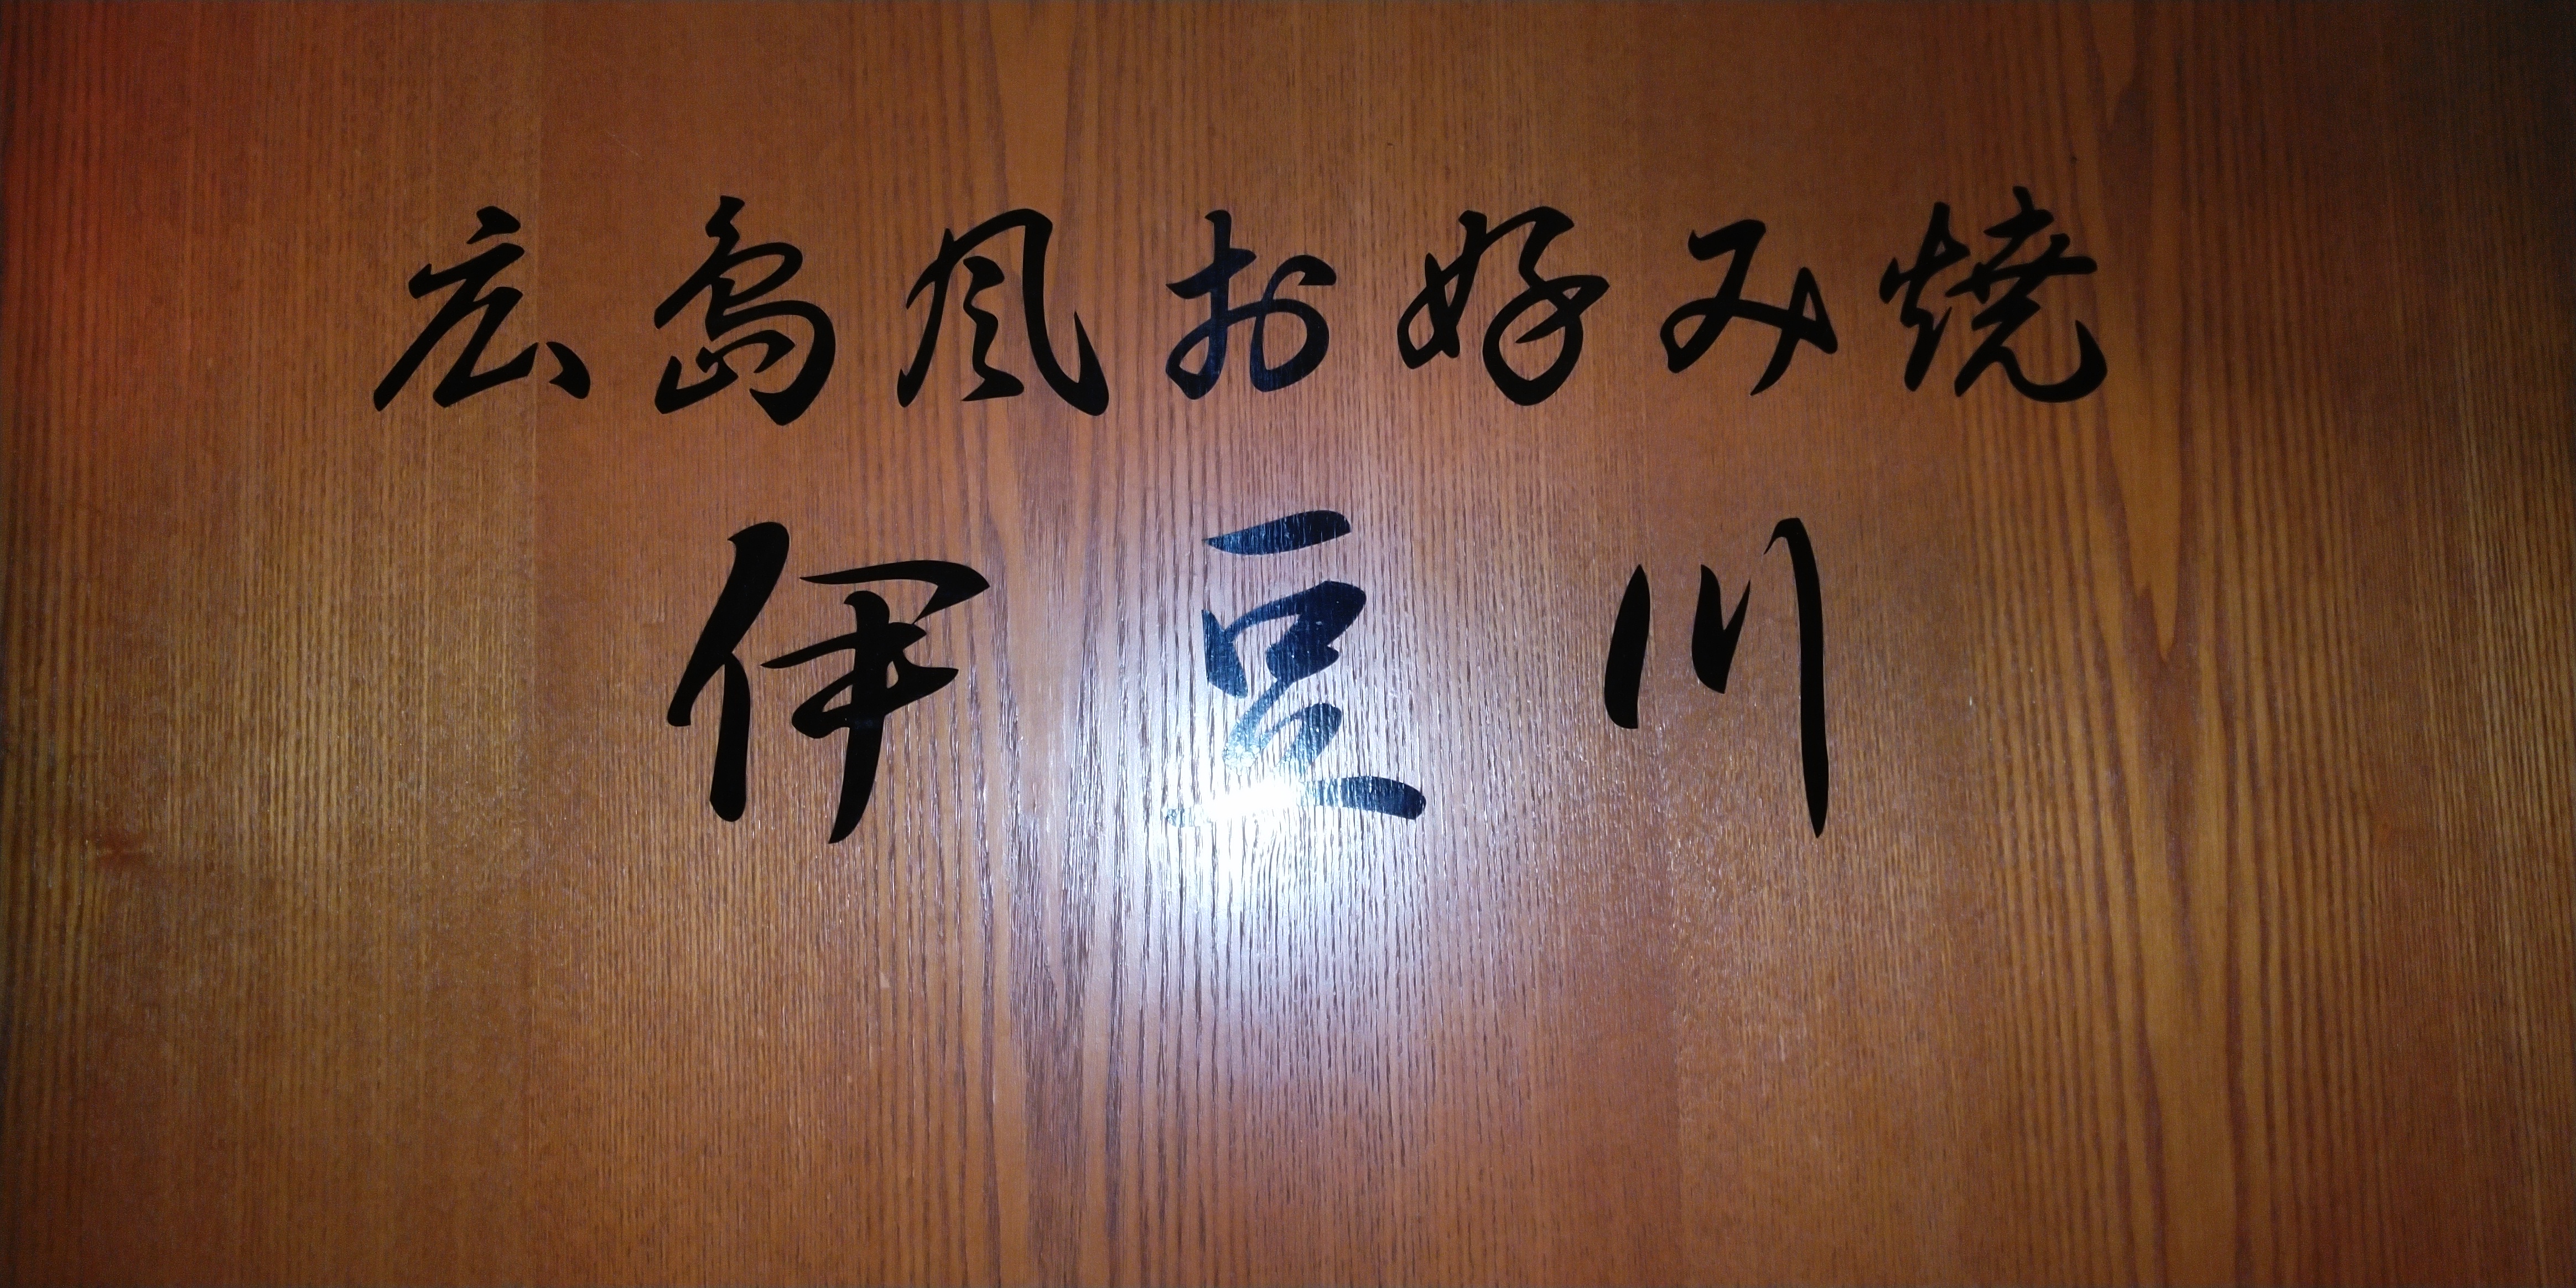 広島風お好み焼
伊豆川